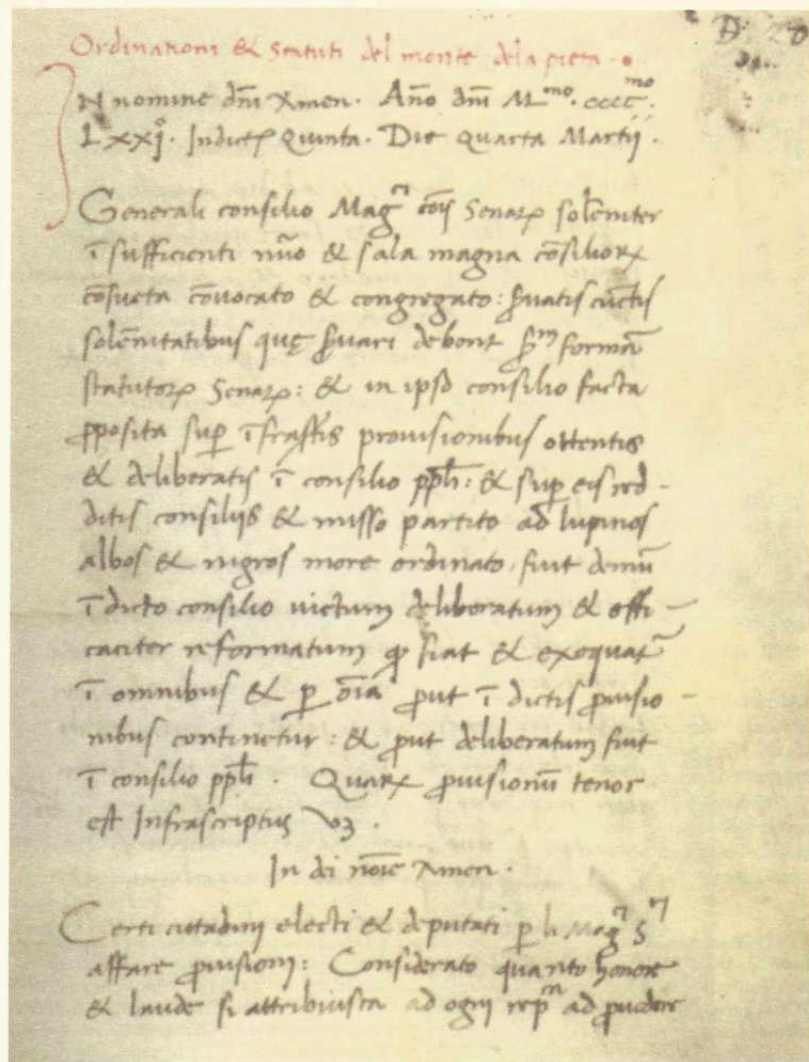 Ordinationi & Statuti del monte dela pieta .
N nomine dñi Amen. Año dñi M.mo cccc.mo
Lxxi.o Indict. Quinta. Die Quarta Martij.
Generali consilio Mag.ci cõis Senarꝝ solẽniter
ĩ sufficienti nũo & sala magna cõsiliorꝝ
cõsueta cõvocato & congregato: ẜvatis cũctis
solẽnitatibus quę ẜvari debent ẜm formã
statutorꝝ Senarꝝ: & in ipso consilio facta
ꝓposita suꝑ ĩfrasctis provisionibus ottentis
& deliberatis ĩ consilio ppli: & suꝑ eis red-
ditis consilijs & misso partito ad lupinos
albos & nigros more ordinato, fuit demũ
ĩ dicto consilio victum deliberatum & effi-
caciter reformatum ꝙ fiat & exequat̃
ĩ omnibus & ꝑ oĩa ꝓut ĩ dictis ꝓvisio-
nibus continetur: & ꝓut deliberatum fuit
ĩ consilio ppli. Quarꝝ ꝓvisionũ tenor
est Infrascriptus vꝫ.
In dei noĩe Amen.
Certi cittadini electi & deputati ꝑ li Mag.ci S.ri
affare ꝓvisioni: Considerato quanto honore
& laude si attribuisca ad ogni rep.ca ad ꝓvedere